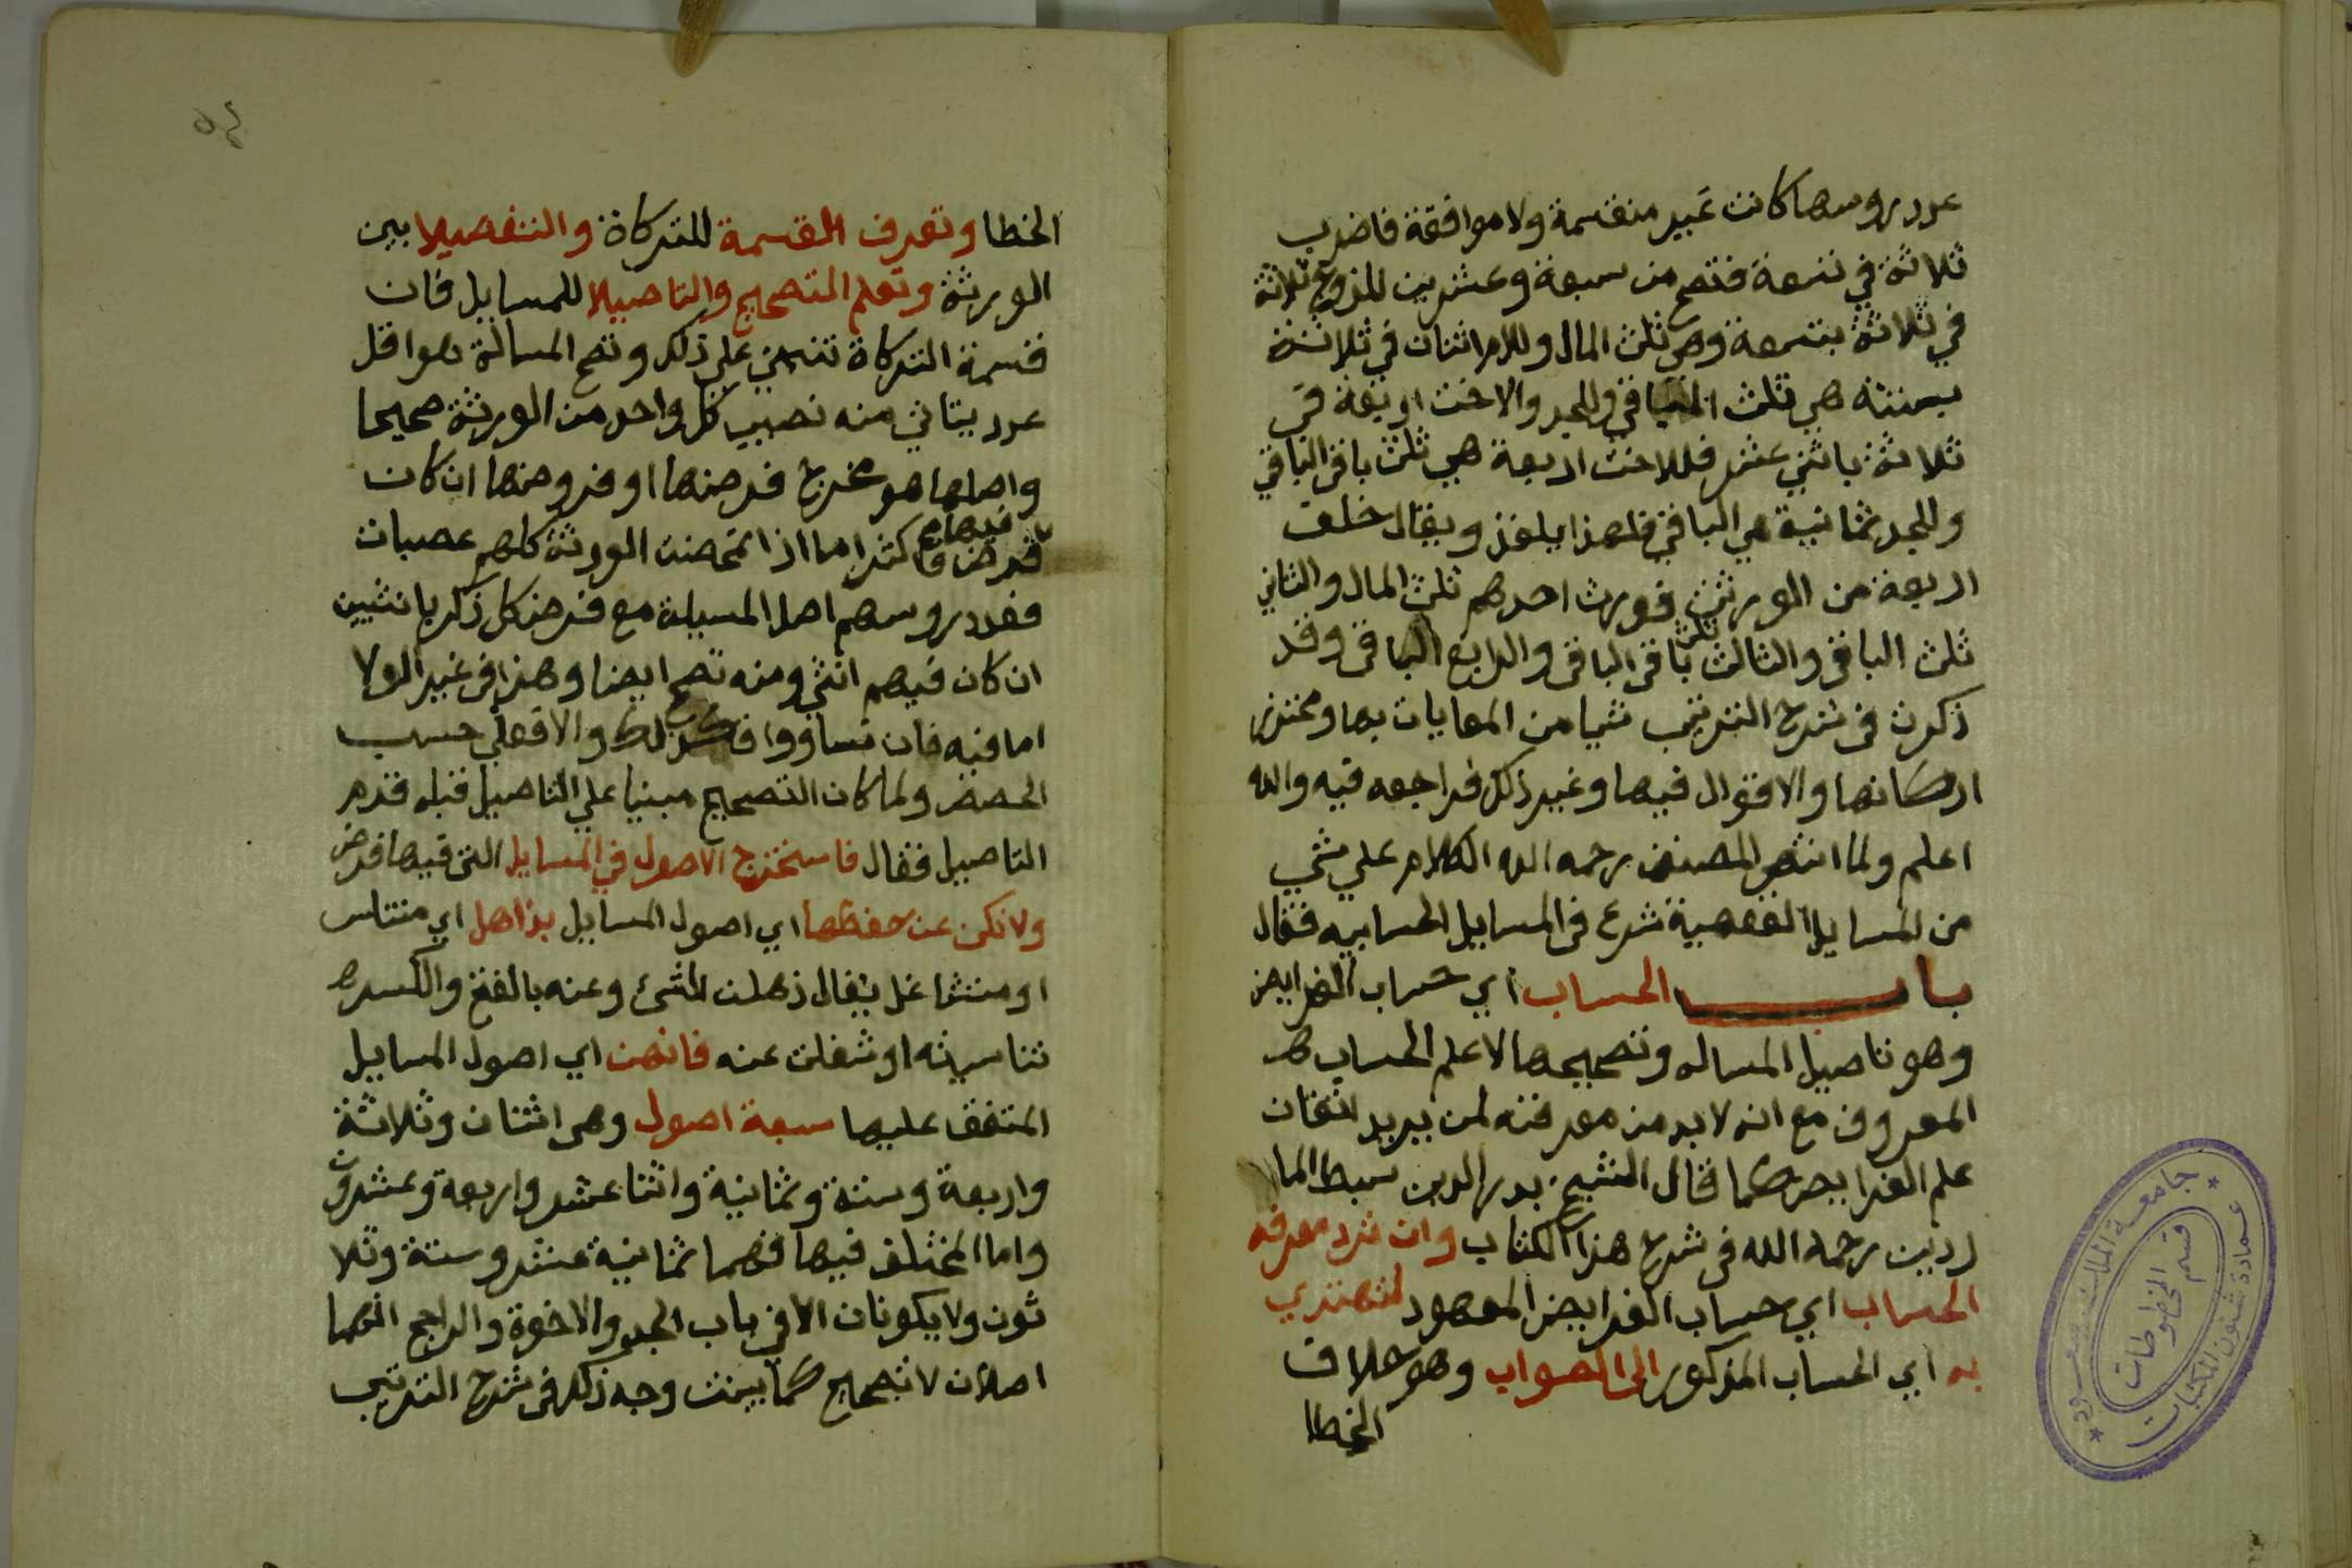 عدد روسها كانت غير منقسمة ولا موافقة فاضرب
ثلاثة في تسعة فتصح من سبعة وعشرين للزوج ثلاثة
في ثلاثة بتسعة وهي ثلث المال وللام اثنان في ثلاثة
بستة هي ثلث الباقي وللجد والاخت اربعة في
ثلاثة باثني عشر فللاخت اربعة هي ثلث باقي الباقي
وللجد ثمانية هي الباقي فلهذا يلغز ويقال خلف
اربعة من الورثة فورث احدهم ثلث المال والثاني
ثلث الباقي والثالث ثلث باقي الباقي والرابع الباقي وقد
ذكرت في شرح الترتيب شيا من المعايات بها ومحترز
اركانها والاقوال فيها وغير ذلك فراجعه فيه والله
اعلم ولما انتهى المصنف رحمه الله الكلام علي شي
من المسايل الفقهية شرع في المسايل الحسابيه فقال
باب الحساب اي حساب الفرايض
وهو تاصيل المساله وتصحيحها لا علم الحساب
المعروف مع انه لا بد من معرفته لمن يريد اتقان
علم الفرايض كما قال الشيخ بدر الدين سبط الما
ردين رحمه الله في شرح هذا الكتاب وان ترد معرفه
الحساب اي حساب الفرايض المعهود لتهتدي
به اي الحساب المذكور الى الصواب وهو خلاف
الخطا
جامعة الملك سعود
عمادة شئون المكتبات
قسم المخطوطات
٥٤
الخطا وتعرف القسمة للتركاة والتفصيلا بين
الورثة وتعلم التصحيح والتاصيلا للمسايل فان
قسمة التركاة تنبني علي ذلك وتصح المسالة هو اقل
عدد يتاتي منه نصيب كل واحد من الورثة صحيحا
واصلها هو مخرج فرضها او فروضها ان كان
فيها فرض فاكثر اما اذا تمحضت الورثة كلهم عصبات
فعدد روسهم اصل المسيلة مع فرض كل ذكر بانثيين
ان كان فيهم انثي ومنه تصح ايضا وهذا في غير الولا
اما فيه فان تساووا فكذلك والا فعلي حسب
الحصص ولما كان التصحيح مبنيا علي التاصيل قبله قدم
التاصيل فقال فاستخرج الاصول في المسايل التي فيها فرض
ولا تكن عن حفظها اي اصول المسايل بذاهل اي متناس
او متشاغل يقال ذهلت للشئ وعنه بالفتح والكسر
تناسيته او شغلت عنه فانهن اي اصول المسايل
المتفق عليها سبعة اصول وهي اثنان وثلاثة
واربعة وستة وثمانية واثنا عشر واربعة وعشرون
واما المختلف فيها فهما ثمانية عشر وستة وثلا
ثون ولا يكونان الا في باب الجد والاخوة والراجح انهما
اصلان لا تصحيح كما بينت وجه ذلك في شرح الترتيب